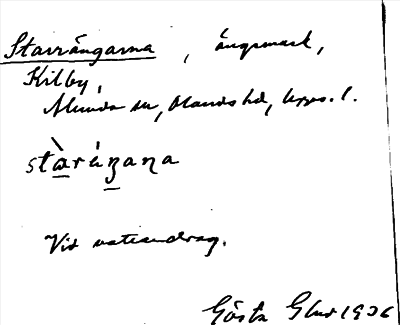 Starrängarna, ängsmark,
Kilby,
Alunda sn, Olands hd, Upps. l.
stàráŋana
Vid vattendrag.
Gösta 1936